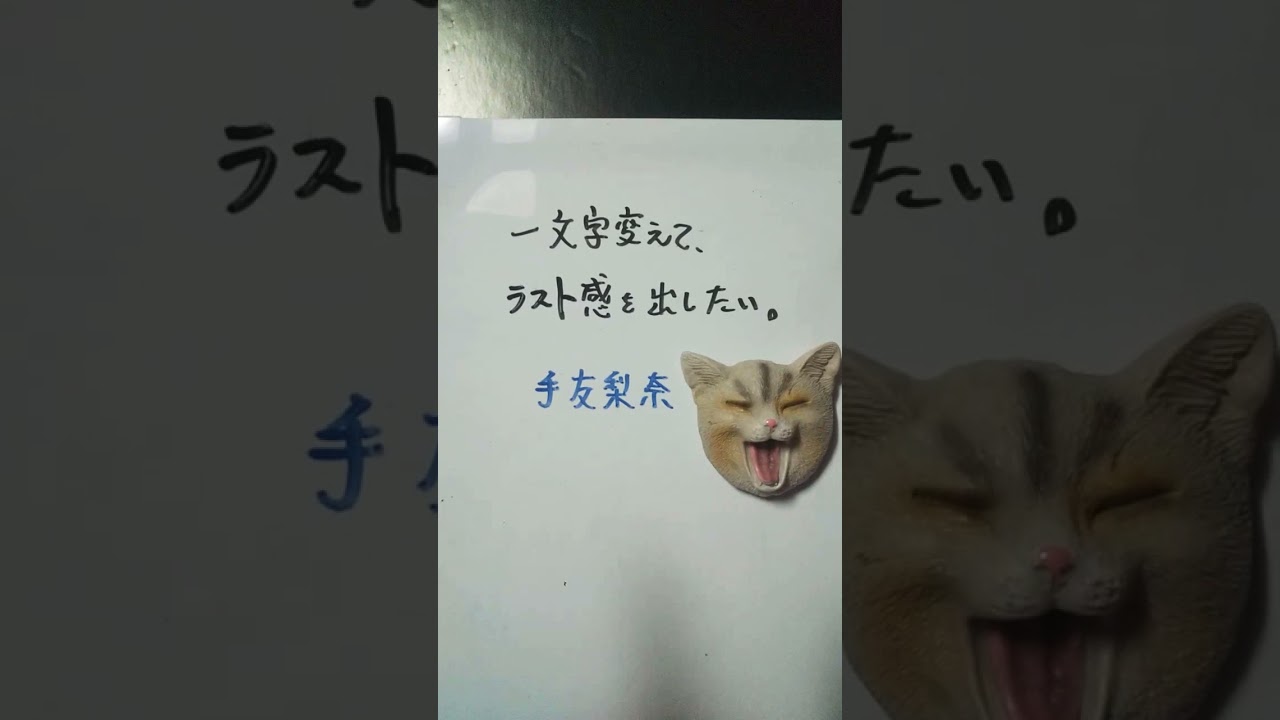 一文字変えて、
ラスト感を出したい。
手友梨奈